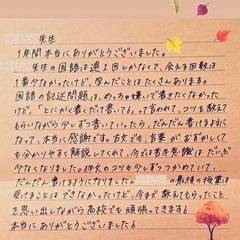 先生
1年間本当にありがとうございました。
先生の国語は週1回しかなくて、会える回数は
1番少なかったけど、学んだことはたくさんあります。
国語の記述問題は、めっちゃ嫌いで書きたくなかった
けど、「とにかく書くだけ書いてみ」って言われて、コツを教えて
もらいながら少しずつ書いていったら、だんだん書けるように
なって、本当に感謝です。古文でも、言葉がむずかしくて
も分かりやすく解説してくれて、今では苦手意識はだいぶ
少なくなりました。作文のコツも少しずつつかめていて、
だんだん書けるようになりました。最後の授業は
受けることはできなかったけど、今まで教えてもらったこと
を思い出しながら高校でも頑張ってきます!
本当にありがとうございました!